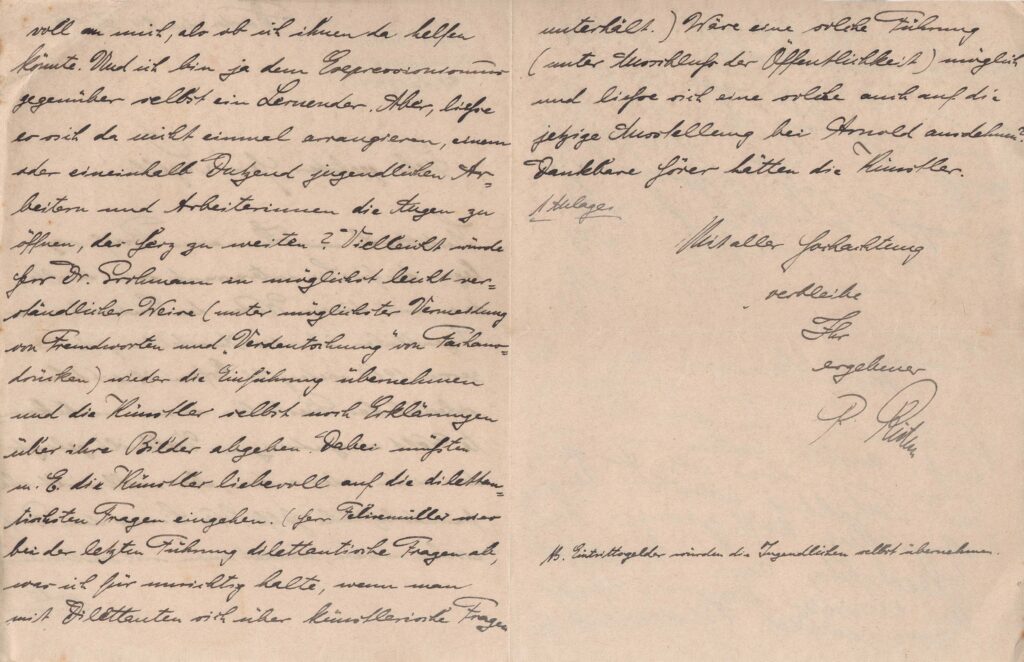 voll an mich, als ob ich ihnen da helfen
könnte. Und ich bin ja dem Expressionismus
gegenüber selbst ein Lernender. Aber, ließe
es sich da nicht einmal arrangieren, einem
oder eineinhalb Dutzend jugendlichen Ar=
beitern und Arbeiterinnen die Augen zu
öffnen, das Herz zu weiten? Vielleicht würde
Herr Dr. Grohmann in möglichst leicht ver=
ständlicher Weise (unter möglichster Vermeidung
von Fremdworten und „Verdeutschung" von Fachaus=
drücken) wieder die Einführung übernehmen
und die Künstler selbst noch Erklärungen
über ihre Bilder abgeben. Dabei müßten
m. E. die Künstler liebevoll auf die dilettan=
tischsten Fragen eingehen. (Herr Felixmüller wies
bei der letzten Führung dilettantische Fragen ab,
was ich für unrichtig halte, wenn man
mit Dilettanten sich über künstlerische Fragen
unterhält.) Wäre eine solche Führung
(unter Ausschluß der Öffentlichkeit) möglich
und ließe sich eine solche auch auf die
jetzige Ausstellung bei Arnold ausdehnen?
Dankbare Hörer hätten die Künstler.
1 Anlage
Mit aller Hochachtung
verbleibe
Ihr
ergebener
NB. Eintrittsgelder würden die Jugendlichen selbst übernehmen.